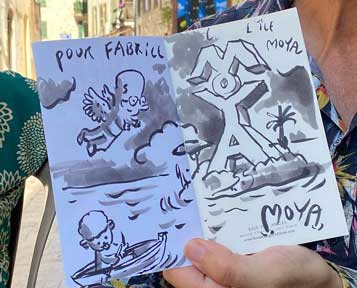 POUR FABRICE
L'ÎLE
MOYA
MOYA
MOYA